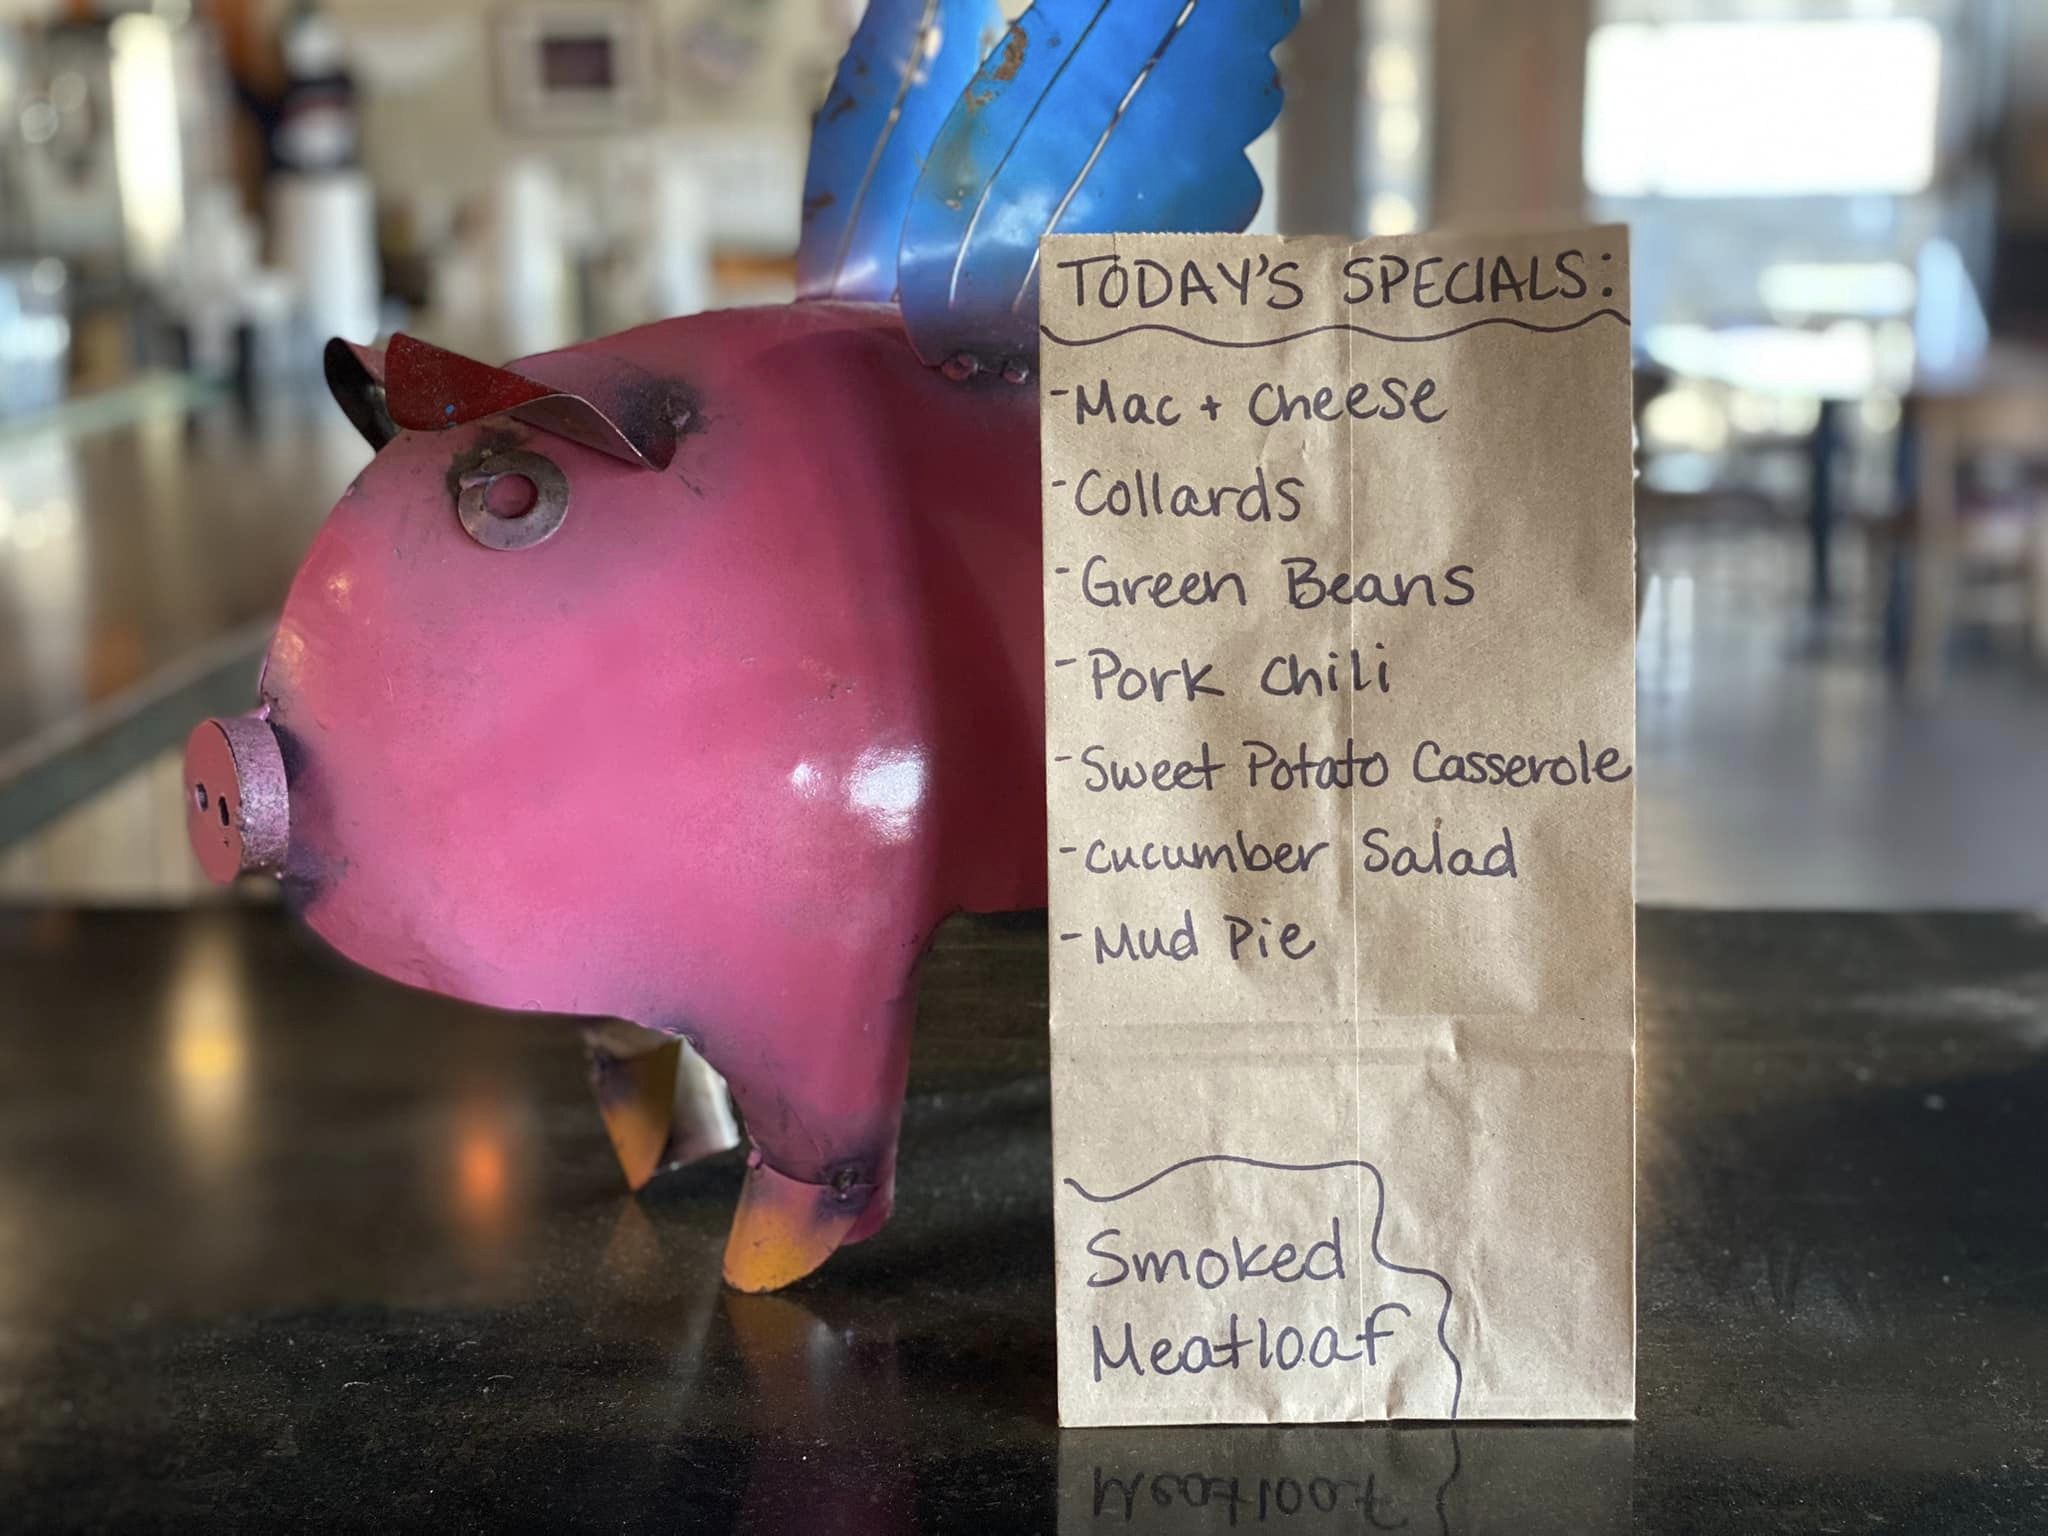 TODAY'S SPECIALS:
- Mac + Cheese
- Collards
- Green Beans
- Pork Chili
- Sweet Potato Casserole
- Cucumber Salad
- Mud Pie
Smoked
Meatloaf